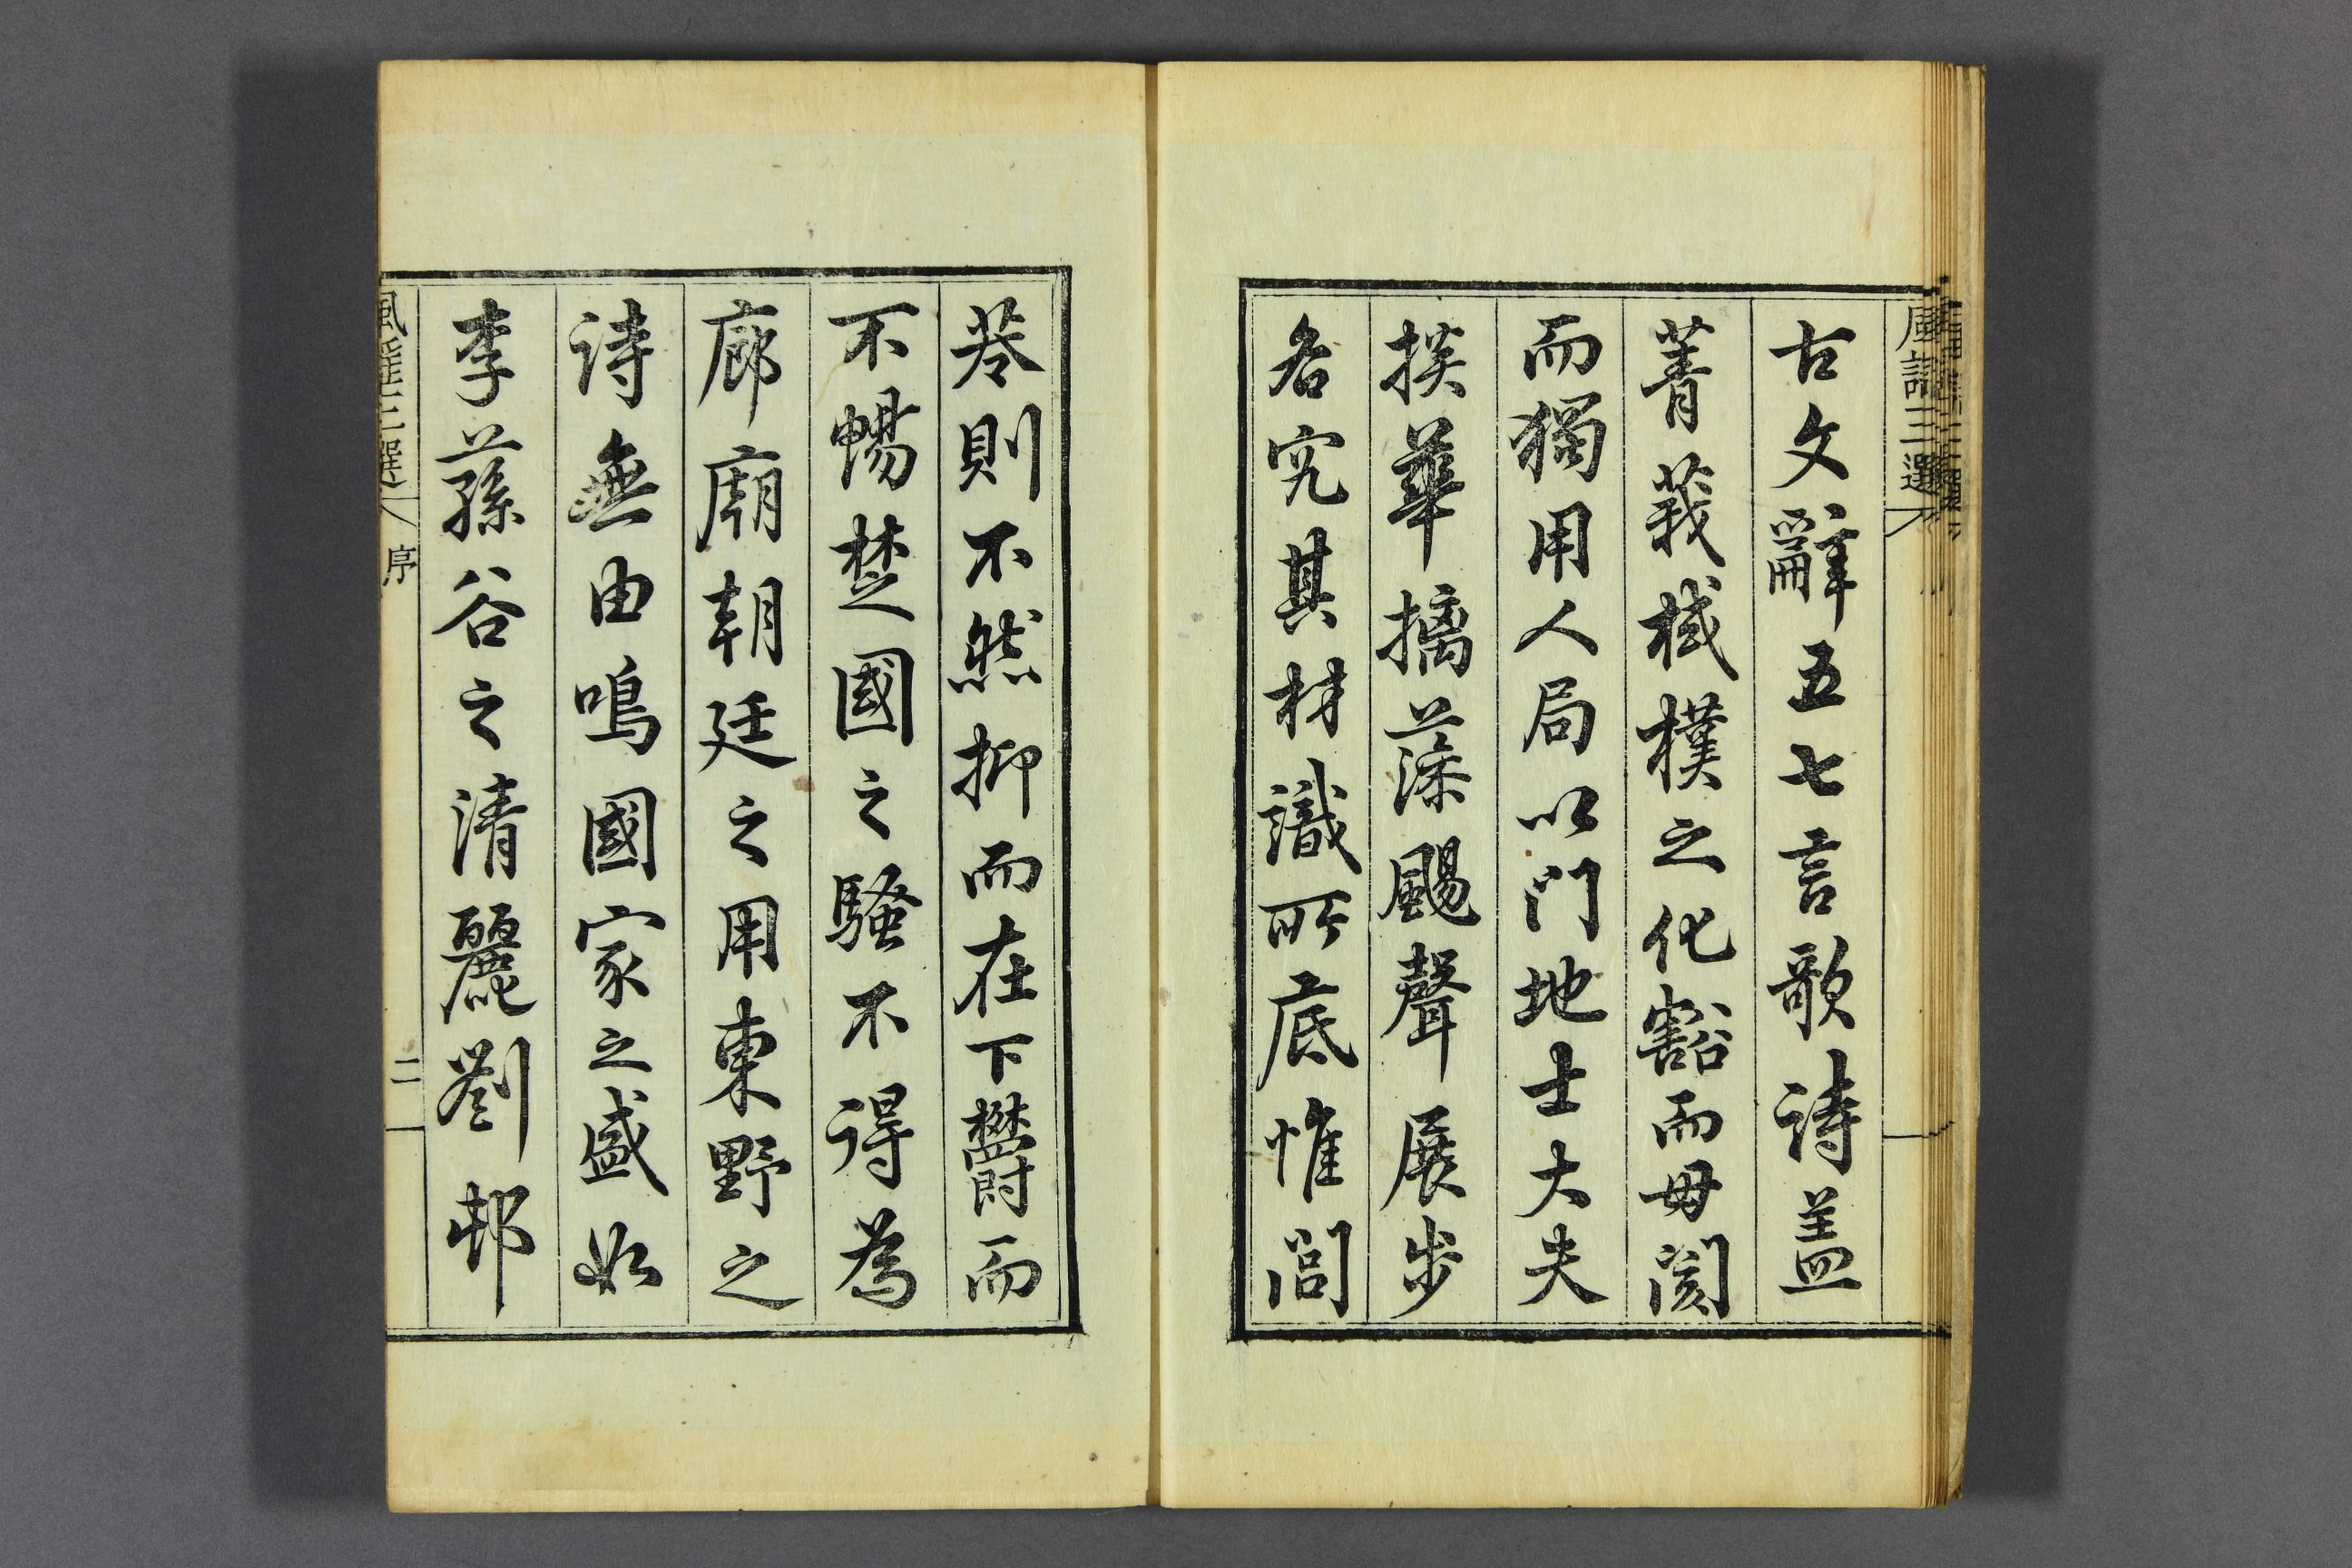 風謠三選
古文辭五七言歌詩盖
菁莪棫樸之化豁而毋閡
而獨用人局以門地士大夫
掞華摛藻颺聲展步
各究其材識所底惟閭
巷則不然抑而在下欎而
不暢楚國之騷不得為
廊廟朝廷之用東野之
詩無由鳴國家之盛如
李蓀谷之清麗劉邨
風謠三選 序 二